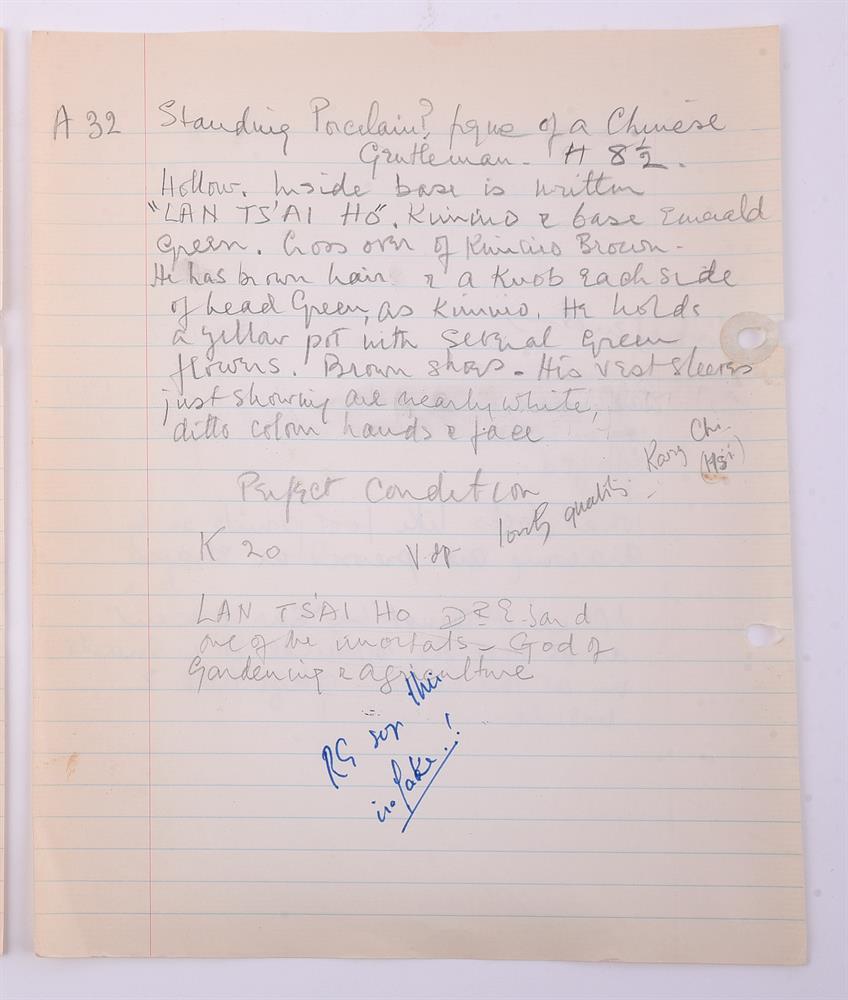 A 32 Standing Porcelain? figure of a Chinese
Gentleman. H 8½.
Hollow. Inside base is written
"LAN TS'AI HO". Kimino & base Emerald
Green. Cross over of Kimino Brown -
He has brown hair & a Knob each side
of head Green, as Kimino. He holds
a yellow pot with several green
flowers. Brown shoes - His vest sleeves
just showing are nearly white,
ditto colour hands & face
Perfect Condition
lovely quality. Kang Chi.
(Hsi)
K 20
LAN TS'AI HO
one of the imortals - God of
Gardening & agriculture
RG says this
is fake..!